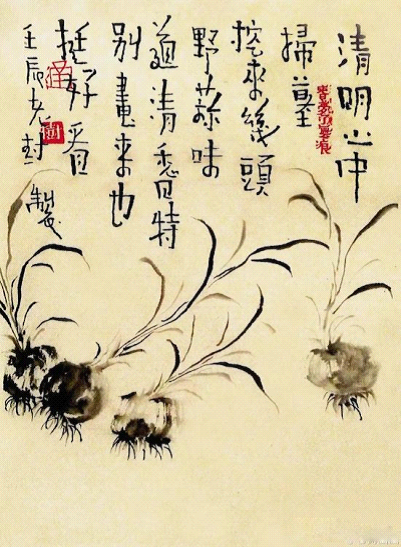 清明山中
掃墓
挖來幾頭
野蒜味
道清香且特
别畫來也
挺好看
壬辰老封
製